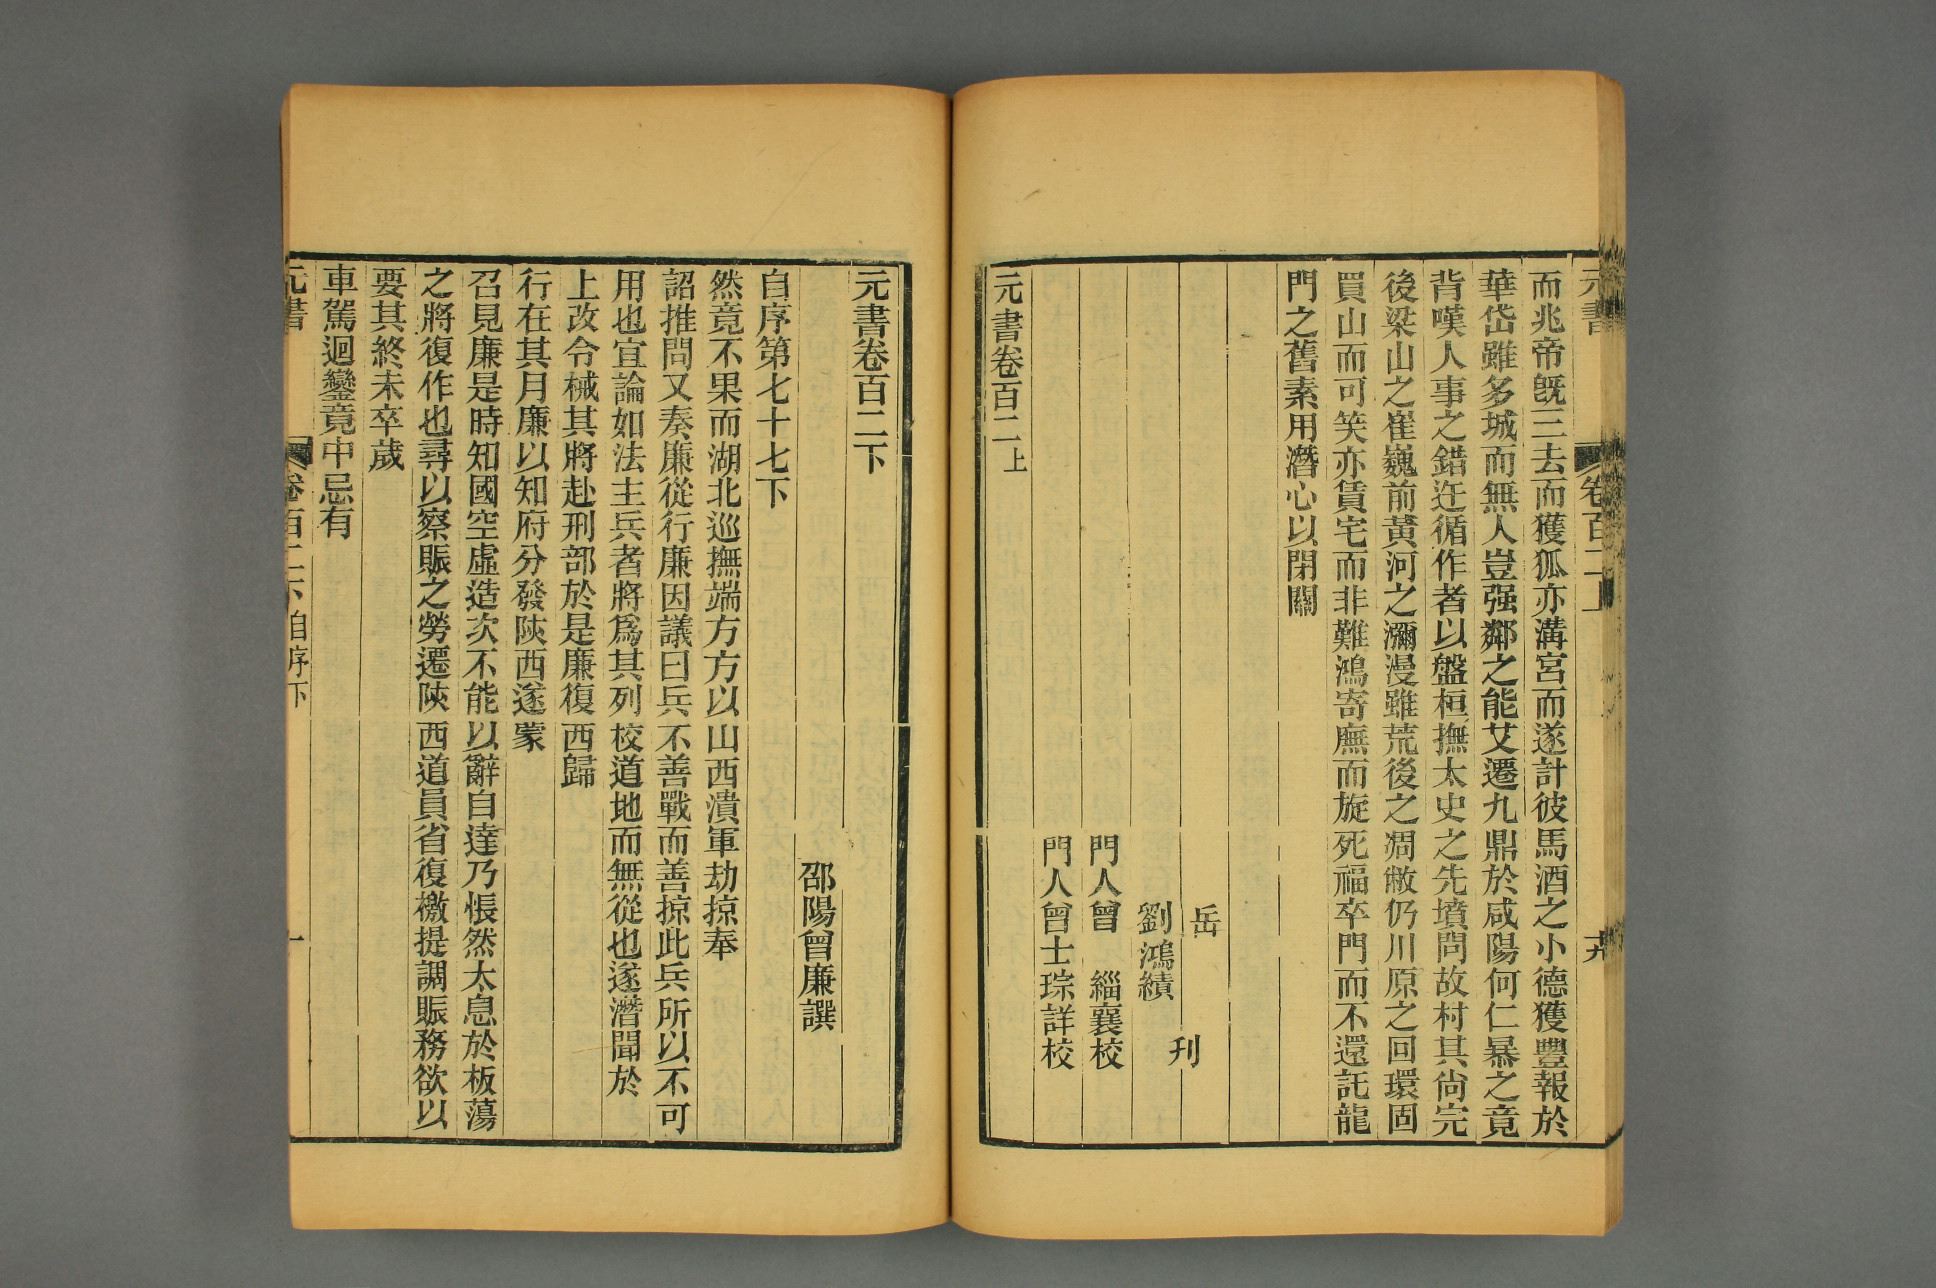 元書
卷百二上
而兆帝旣三去而獲狐亦溝宮而遂計彼馬酒之小德獲豐報於
華岱雖多城而無人豈强鄰之能艾遷九鼎於咸陽何仁暴之竟
背嘆人事之錯迕循作者以盤桓撫太史之先墳問故村其尙完
後梁山之崔巍前黃河之瀰漫雖荒後之凋敝仍川原之回環固
買山而可笑亦賃宅而非難鴻寄廡而旋死福卒門而不還託龍
門之舊素用潛心以閉關
岳
刊
劉鴻績
門人曾　緇襄校
門人曾士琮詳校
元書卷百二上
元書卷百二下
邵陽曾廉譔
自序第七十七下
然竟不果而湖北巡撫端方方以山西潰軍劫掠奉
詔推問又奏廉從行廉因議曰兵不善戰而善掠此兵所以不可
用也宜論如法主兵者將爲其列校道地而無從也遂潛聞於
上改令械其將赴刑部於是廉復西歸
行在其月廉以知府分發陝西遂蒙
召見廉是時知國空虛造次不能以辭自達乃悵然太息於板蕩
之將復作也尋以察賑之勞遷陝西道員省復檄提調賑務欲以
要其終未卒歲
車駕迴鑾竟中忌有
元書
卷百二下自序下
一